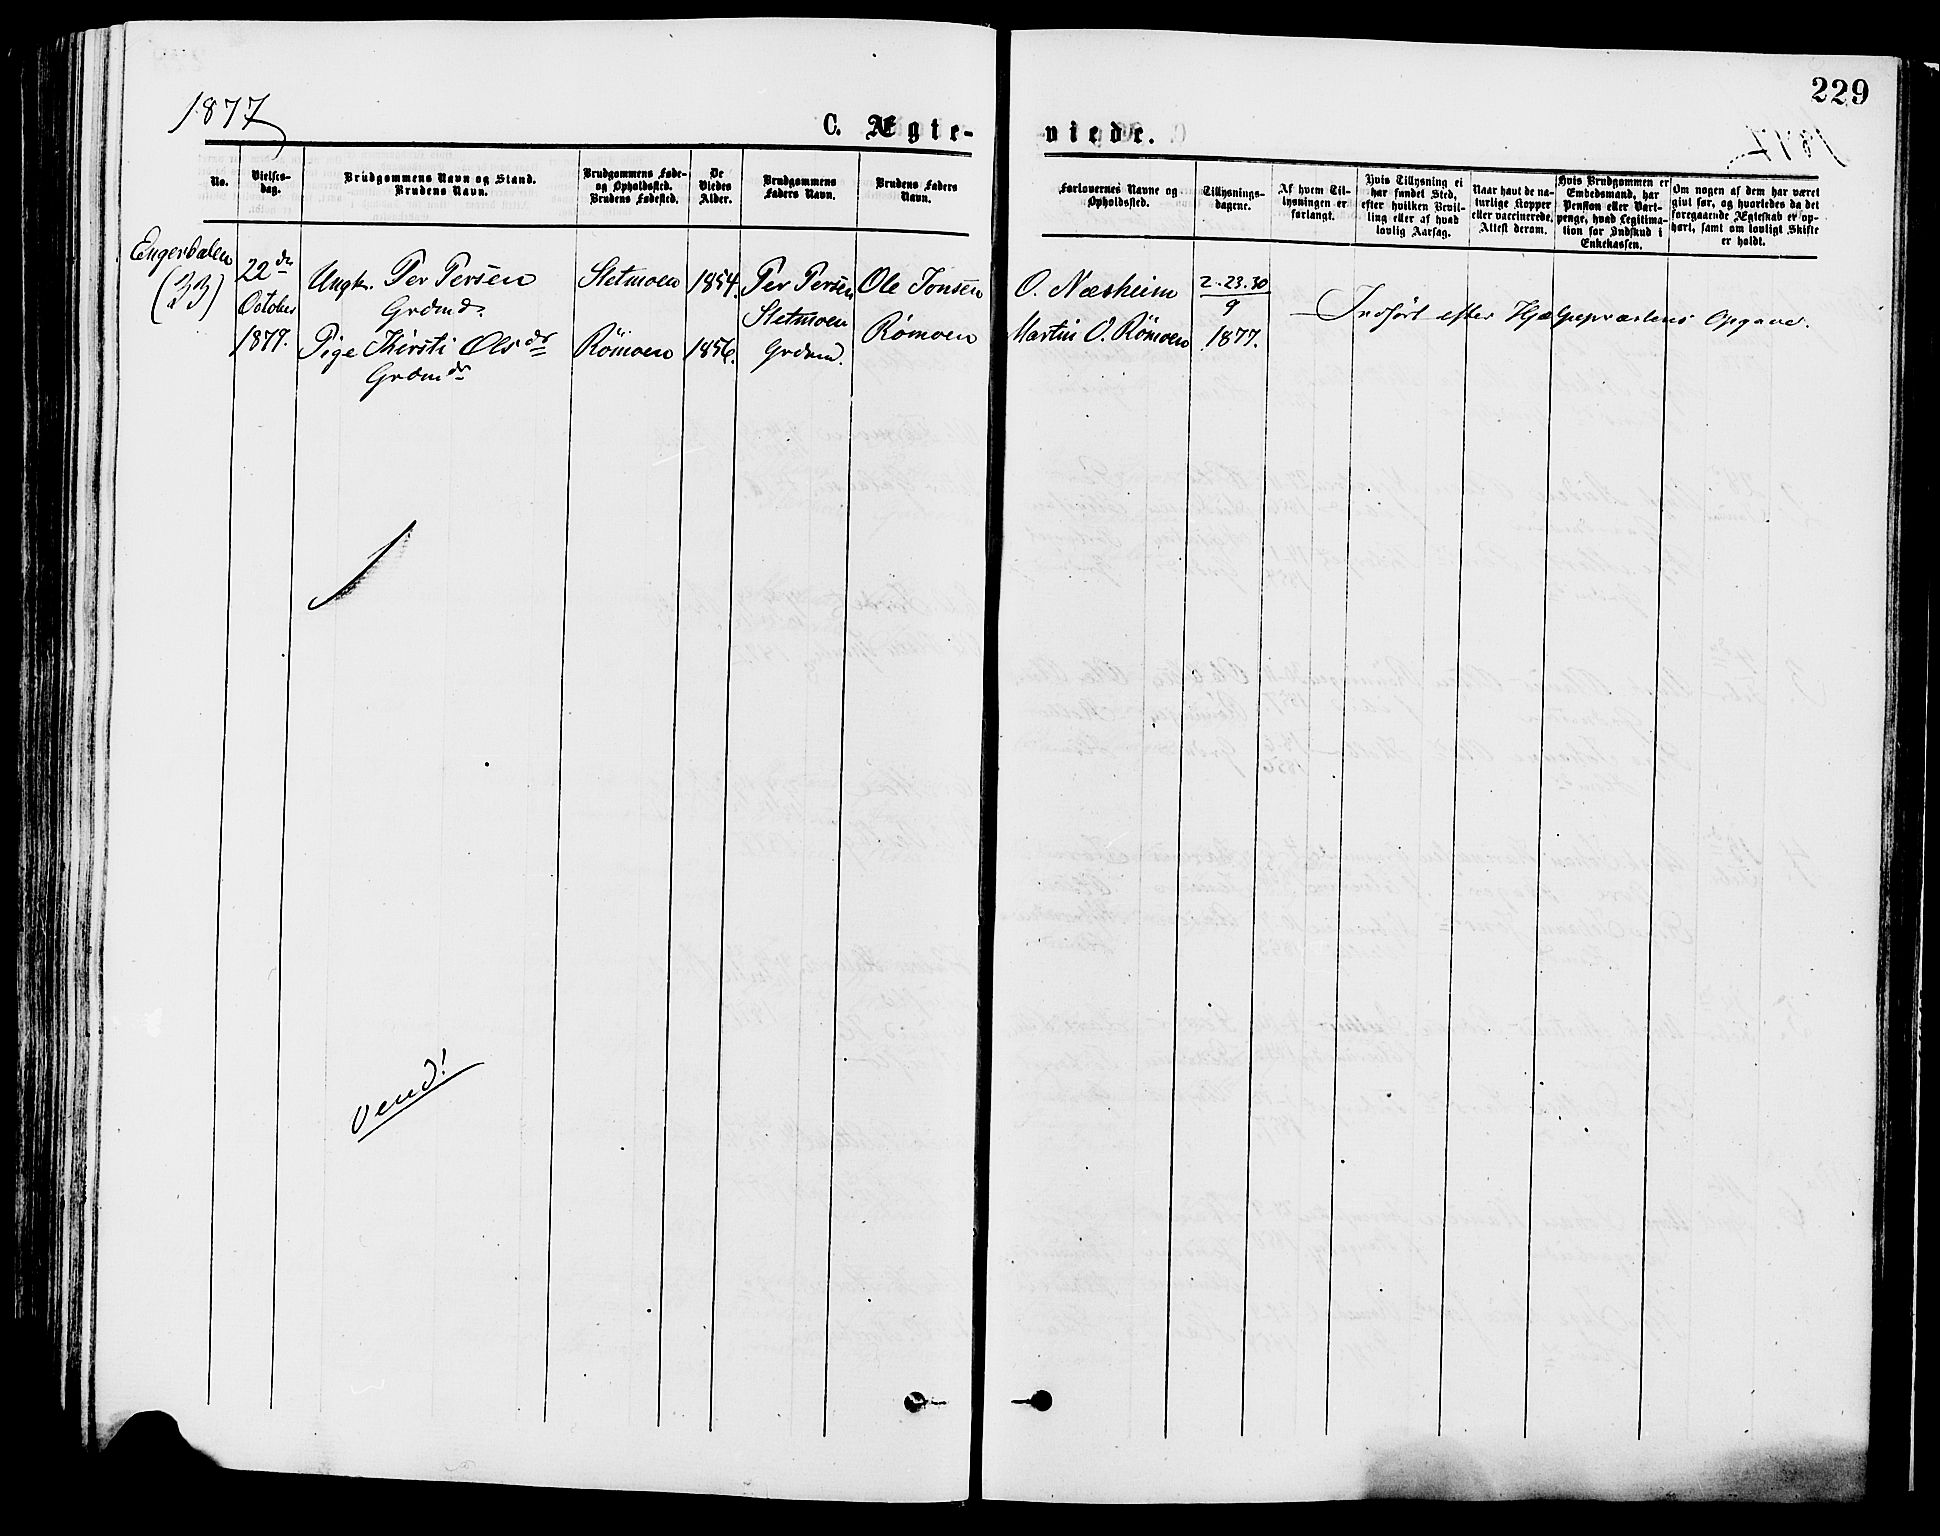 229
1877
C. Ægte-viede.
No.
Vielses-
dag.
Brudgommens Navn og Stand.
Brudens Navn.
Brudgommens Føde-
og Opholdssted.
Brudens Fødested.
De
Viedes
Alder.
Brudgommens
Faders Navn.
Brudens Faders
Navn.
Forlovernes Navne og
Opholdssted.
Tillysnings-
dagene.
Af hvem Til-
lysningen er
forlangt.
Hvis Tillysning ei
har fundet Sted,
efter hvilken Bevil-
ling eller af hvad
lovlig Aarsag.
Naar havt de na-
turlige Kopper
eller vaccinerede.
Attest derom.
Hvis Brudgommen er
Embedsmand, har
Pension eller Vart-
penge, hvad Legitima-
tion for Indskud i
Enkekassen.
Om nogen af dem har været
gift før, og hvorledes da det
foregaaende Ægteskab er op-
hørt, samt om lovligt Skifte
er holdt.
Engerdalen
(33)
22de
October
1877.
Ungk. Per Persen
Grdmds.
Pige Kirsti Olsdr
Grdmdr
Sletmoen
Römoen
1854.
1856.
Per Persen
Sletmoen
Grdmd.
Ole Jonsen
Römoen
O. Næsheim
Martin O. Römoen
2. 23. 30
9
1877.
Indført efter Hjælpepræstens Opgave.
vend!